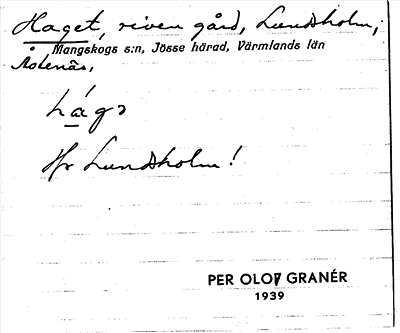 Haget, riven gård, Lundsholm,
Mangskogs s:n, Jösse härad, Värmlands län
Åstenäs,
hágɔ
Hr Lundsholm!
PER OLOF GRANÉR
1939